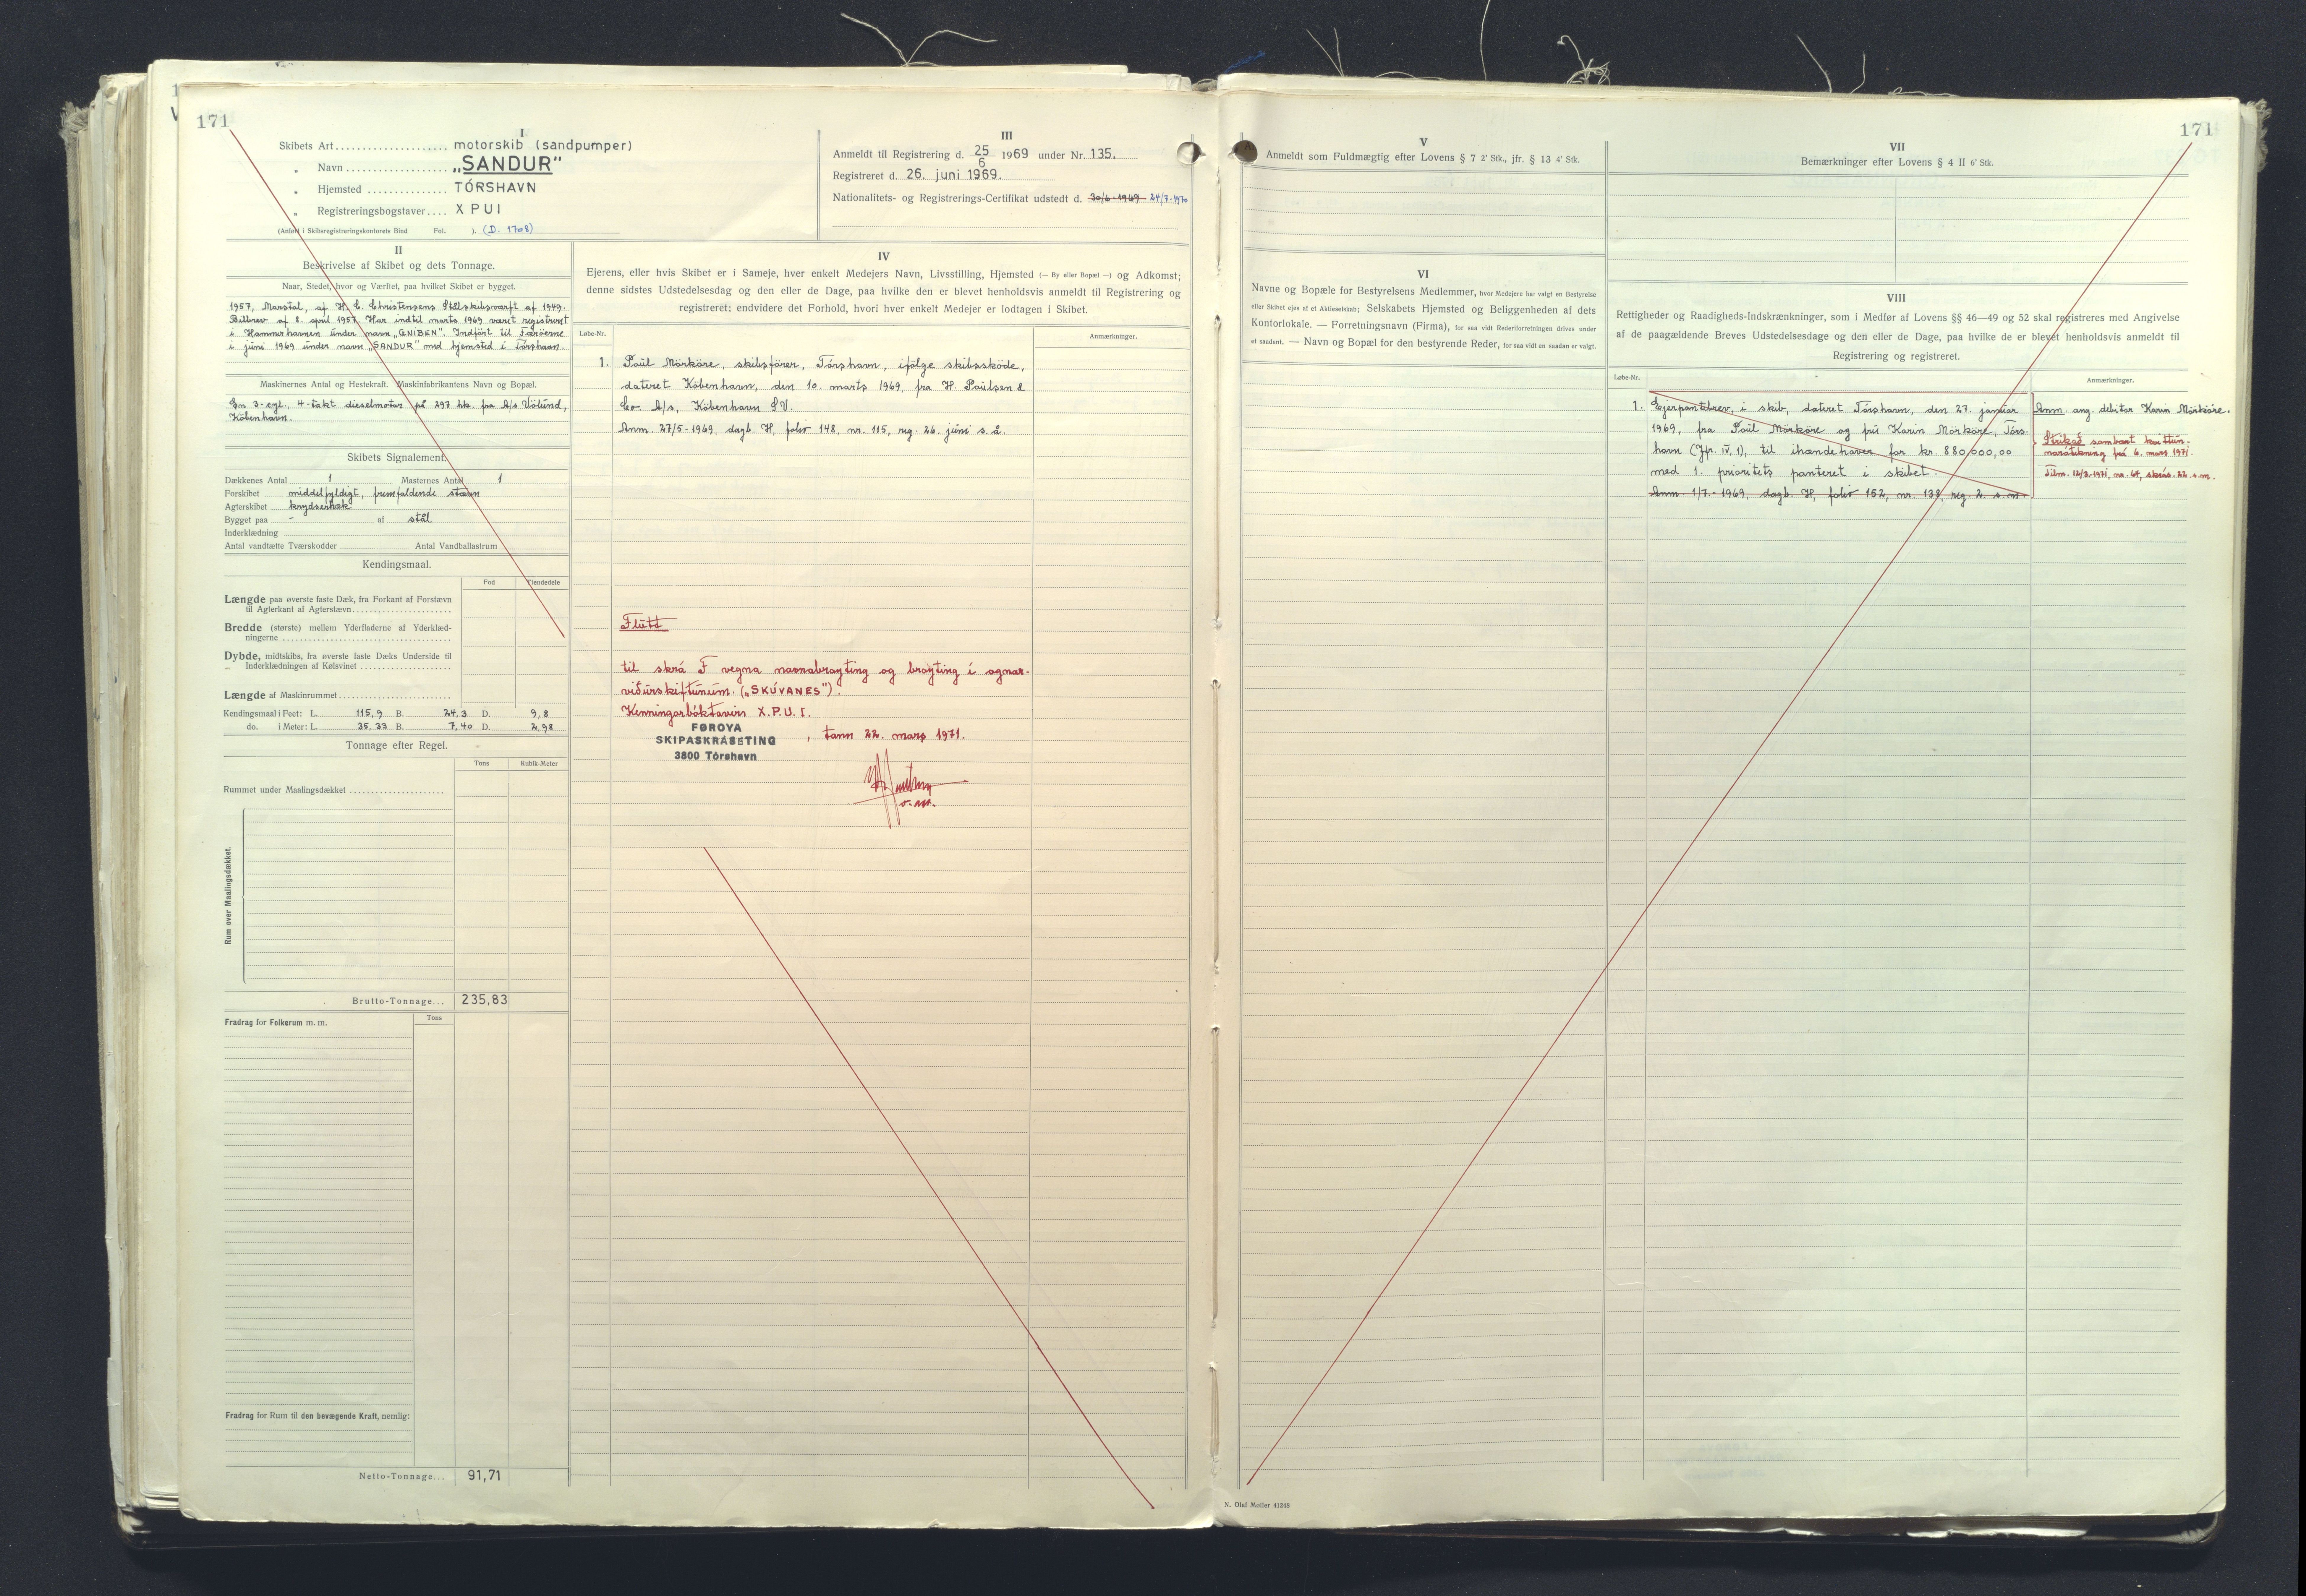 171
I
Skibets Art .................... motorskib (sandpumper)
„ Navn .................. „SANDUR"
„ Hjemsted .............. TÓRSHAVN
„ Registreringsbogstaver .... XPUI
(Anført i Skibsregistreringskontorets Bind Fol. ). (D. 1708)
III
Anmeldt til Registrering d. 25/6 1969 under Nr. 135.
Registreret d. 26. juni 1969.
Nationalitets- og Registrerings-Certifikat udstedt d. 30/6-1969 24/7-1970
II
Beskrivelse af Skibet og dets Tonnage.
Naar, Stedet, hvor og Værftet, paa hvilket Skibet er bygget.
1957, Marstal, af H. C. Christensens Stålskibsværft af 1949.
Bilbrev af 8. april 1957. Har indtil marts 1969 været registreret
i Hammerhavnen under navn „GNIBEN". Indført til Færöerne
i juni 1969 under navn „SANDUR" med hjemsted i Tórshavn.
Maskinernes Antal og Hestekraft. Maskinfabrikantens Navn og Bopæl.
En 3-cyl., 4-takt dieselmotor på 297 hk. fra A/s Völund,
Köbenhavn.
Skibets Signalement.
Dækkenes Antal 1 Masternes Antal 1
Forskibet middelfyldigt, fremfaldende stævn
Agterskibet krydserhæk
Bygget paa - af stål
Inderklædning
Antal vandtætte Tværskodder Antal Vandballastrum
Kendingsmaal.
Fod Tiendedele
Længde paa øverste faste Dæk, fra Forkant af Forstævn
til Agterkant af Agterstævn
Bredde (største) mellem Yderfladerne af Yderklæd-
ningerne
Dybde, midtskibs, fra øverste faste Dæks Underside til
Inderklædningen af Kølsvinet
Længde af Maskinrummet
Kendingsmaal i Feet: L. 115,9 B. 24,3 D. 9,8
do. i Meter: L. 35,33 B. 7,40 D. 2,98
Tonnage efter Regel.
Tons Kubik-Meter
Rummet under Maalingsdækket
Rum over Maalingsdækket.
Brutto-Tonnage... 235,83
Fradrag for Folkerum m. m. Tons
Fradrag for Rum til den bevægende Kraft, nemlig:
Netto-Tonnage... 91,71
IV
Ejerens, eller hvis Skibet er i Sameje, hver enkelt Medejers Navn, Livsstilling, Hjemsted (— By eller Bopæl —) og Adkomst;
denne sidstes Udstedelsesdag og den eller de Dage, paa hvilke den er blevet henholdsvis anmeldt til Registrering og
registreret; endvidere det Forhold, hvori hver enkelt Medejer er lodtagen i Skibet.
Løbe-Nr. Anmærkninger.
1. Poul Mörköre, skibsförer, Tórshavn, ifölge skibsskøde,
dateret Köbenhavn, den 10. marts 1969, fra H. Poulsen &
Co. A/s, Köbenhavn SV.
Anm. 27/5-1969, dagb. H, folio 148, nr. 115, reg. 26. juni s. å.
Flutt
til skrá F vegna navnabroyting og broyting í ognar-
viðurskiftunum. („SKÚVANES").
Kenningarbókstavir X.P.U.I.
FØROYA
SKIPASKRÁSETING
3800 Tórshavn
, tann 22. mars 1971.
171
V
Anmeldt som Fuldmægtig efter Lovens § 7 2' Stk., jfr. § 13 4' Stk.
VI
Navne og Bopæle for Bestyrelsens Medlemmer, hvor Medejere har valgt en Bestyrelse
eller Skibet ejes af et Aktieselskab; Selskabets Hjemsted og Beliggenheden af dets
Kontorlokale. — Forretningsnavn (Firma), for saa vidt Rederiforretningen drives under
et saadant. — Navn og Bopæl for den bestyrende Reder, for saa vidt en saadan er valgt.
VII
Bemærkninger efter Lovens § 4 II 6' Stk.
VIII
Rettigheder og Raadigheds-Indskrænkninger, som i Medfør af Lovens §§ 46—49 og 52 skal registreres med Angivelse
af de paagældende Breves Udstedelsesdage og den eller de Dage, paa hvilke de er blevet henholdsvis anmeldt til
Registrering og registreret.
Løbe-Nr. Anmærkninger.
1. Ejerpantebrev, i skib, dateret Tórshavn, den 27. januar
1969, fra Poul Mörköre og fru Karin Mörköre, Tórs-
havn (Jfr. IV, 1), til ihændehaver for kr. 880.000,00
med 1. prioritets panteret i skibet.
Anm. 1/7-1969, dagb. H, folio 152, nr. 138, reg. 2. s.m.
Anm. ang. debitor Karin Mörköre.
Strikað sambært kvittun-
naráteikning frá 6. mars 1971.
Tilm. 12/3.1971, nr. 64, skrás. 22. s.m.
N. Olaf Møller 41248